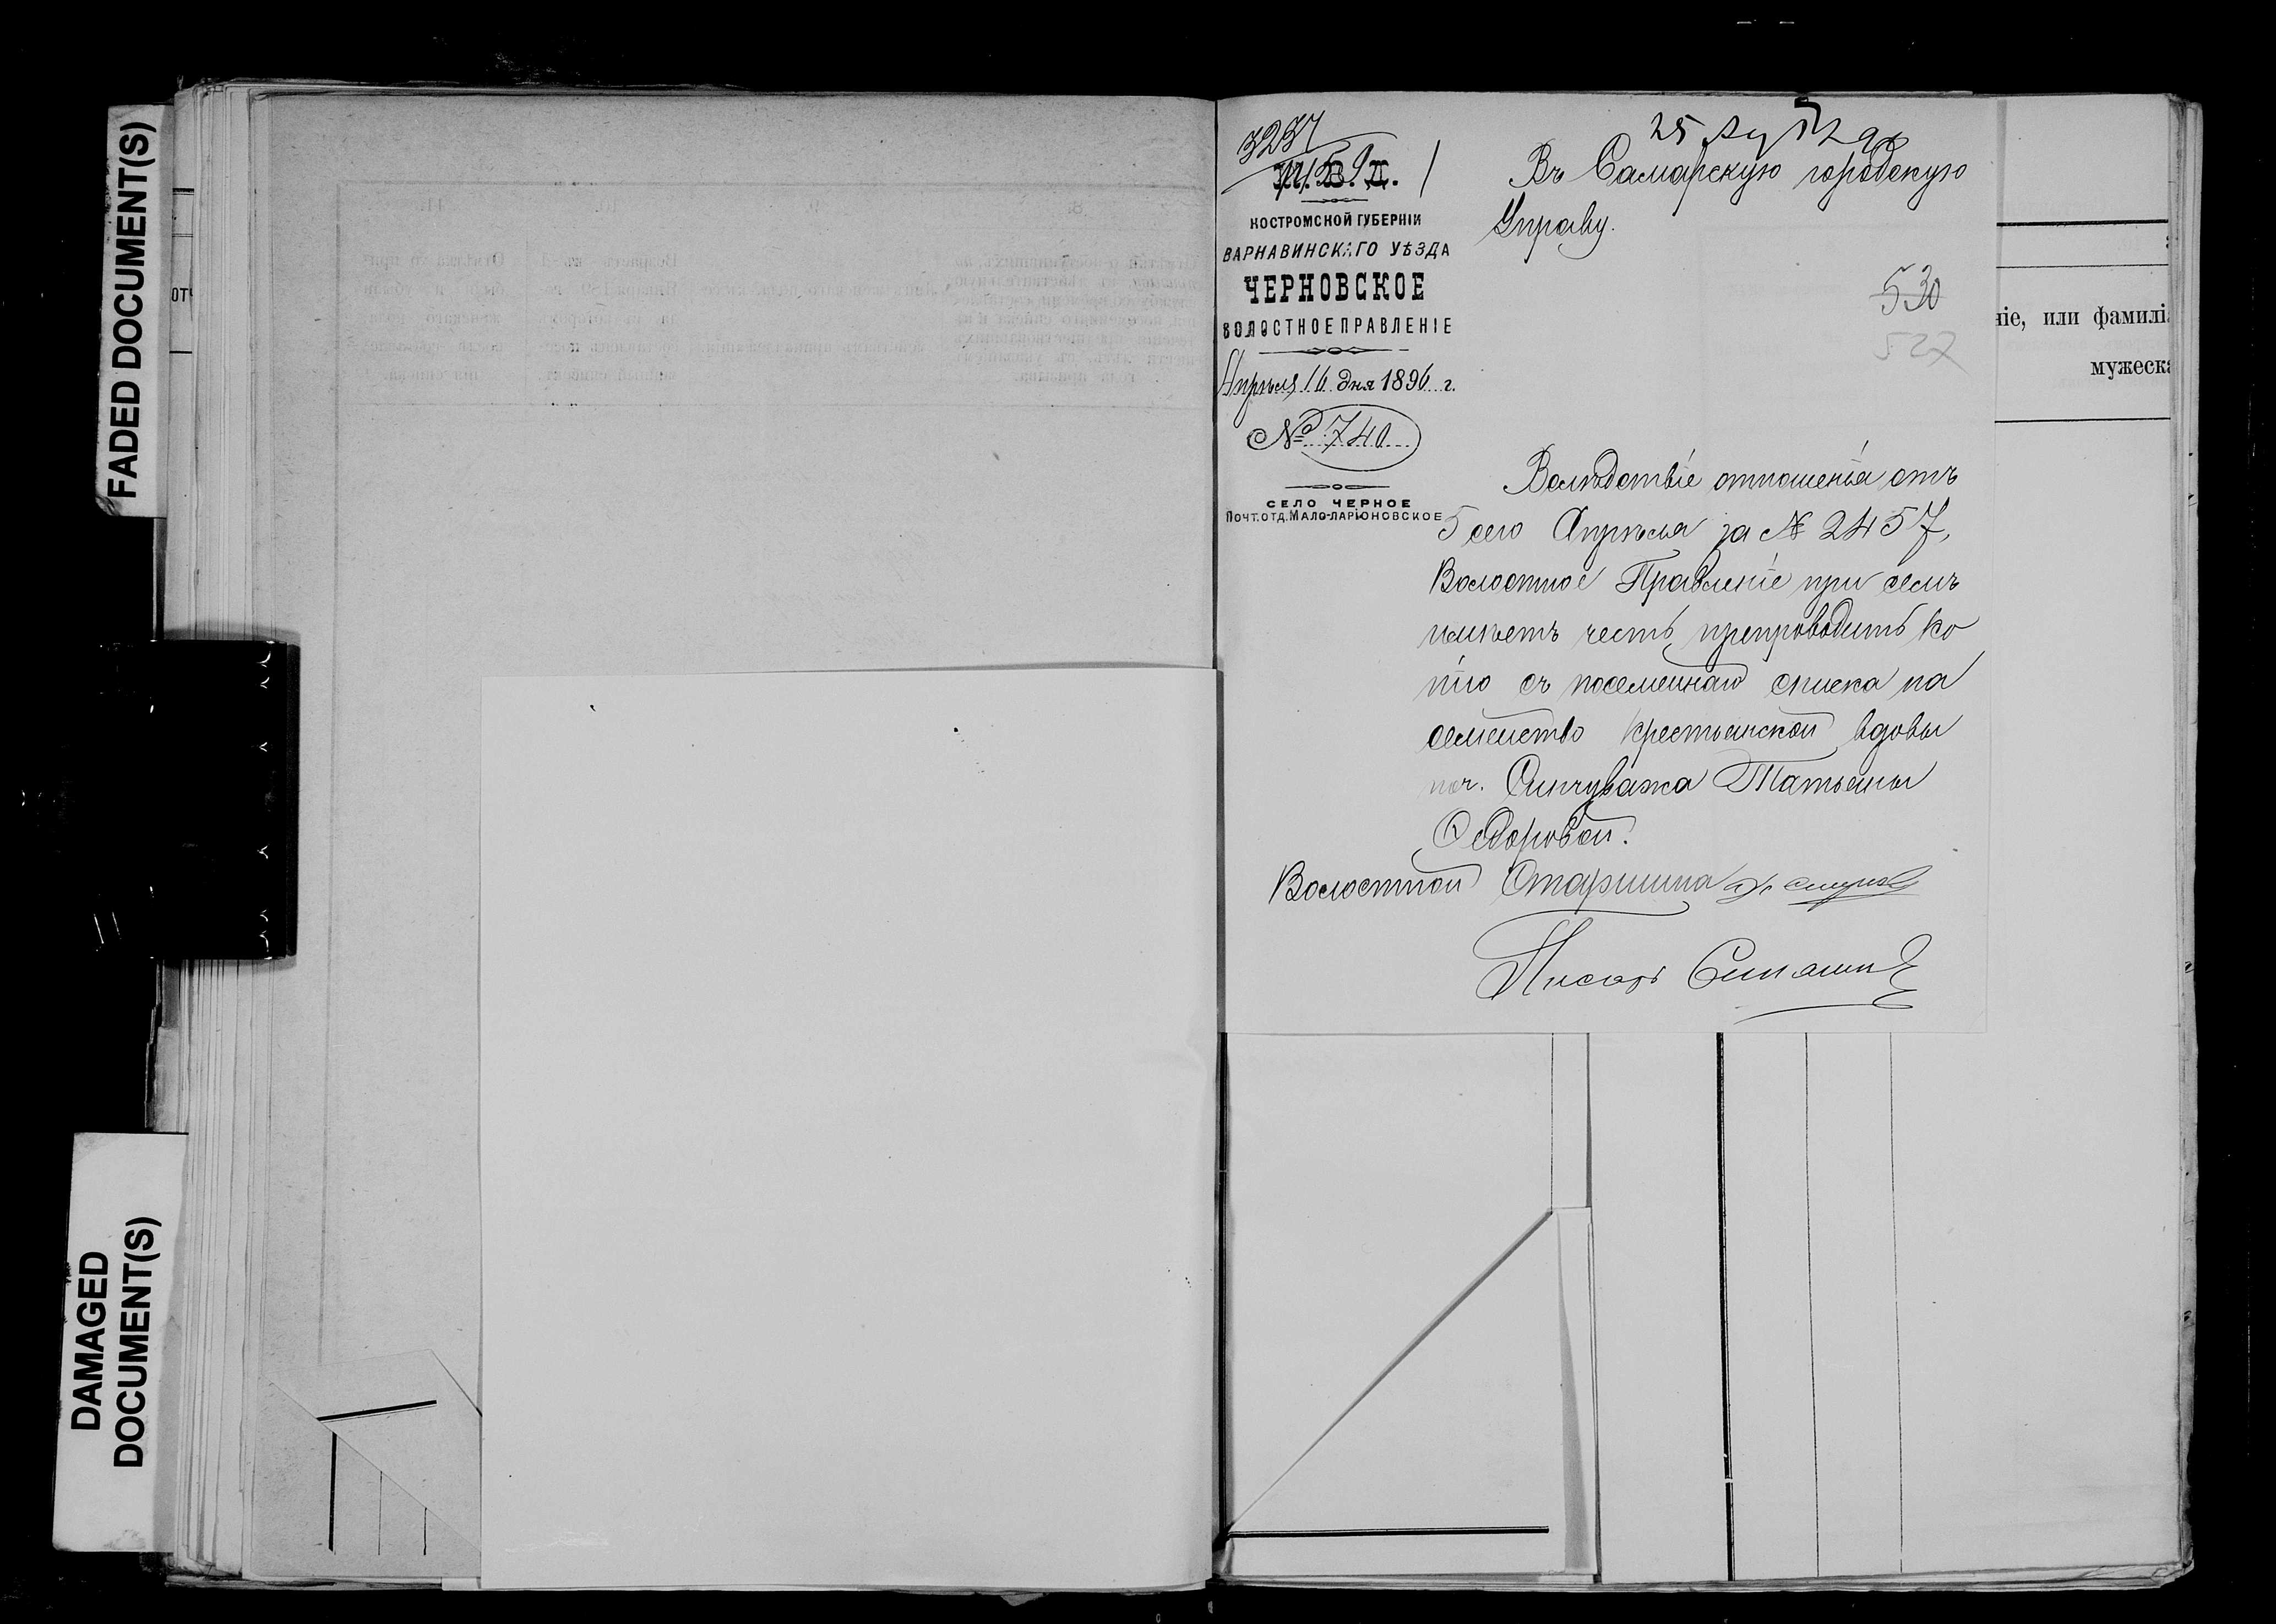 FADED DOCUMENT(S)
DAMAGED
DOCUMENT(S)
3237
М. В. Д.
КОСТРОМСКОЙ ГУБЕРНІИ
ВАРНАВИНСКАГО УѢЗДА
ЧЕРНОВСКОЕ
ВОЛОСТНОЕ ПРАВЛЕНІЕ
Апрѣля 16 дня 1896 г.
№ 740
СЕЛО ЧЕРНОЕ
ПОЧТ. ОТД. МАЛО-ЛАРІОНОВСКОЕ
25
Въ Самарскую городскую
Управу.
530
527
Вслѣдствіе отношенія отъ
5 сего Апрѣля за № 2457,
Волостное Правленіе при семъ
имѣетъ честь препроводить ко
пію съ посемейнаго списка на
семейство крестьянской вдовы
поч. Татьяны
Ѳедоровой.
Волостной Старшина
Писарь
ніе, или фамилі
мужеска